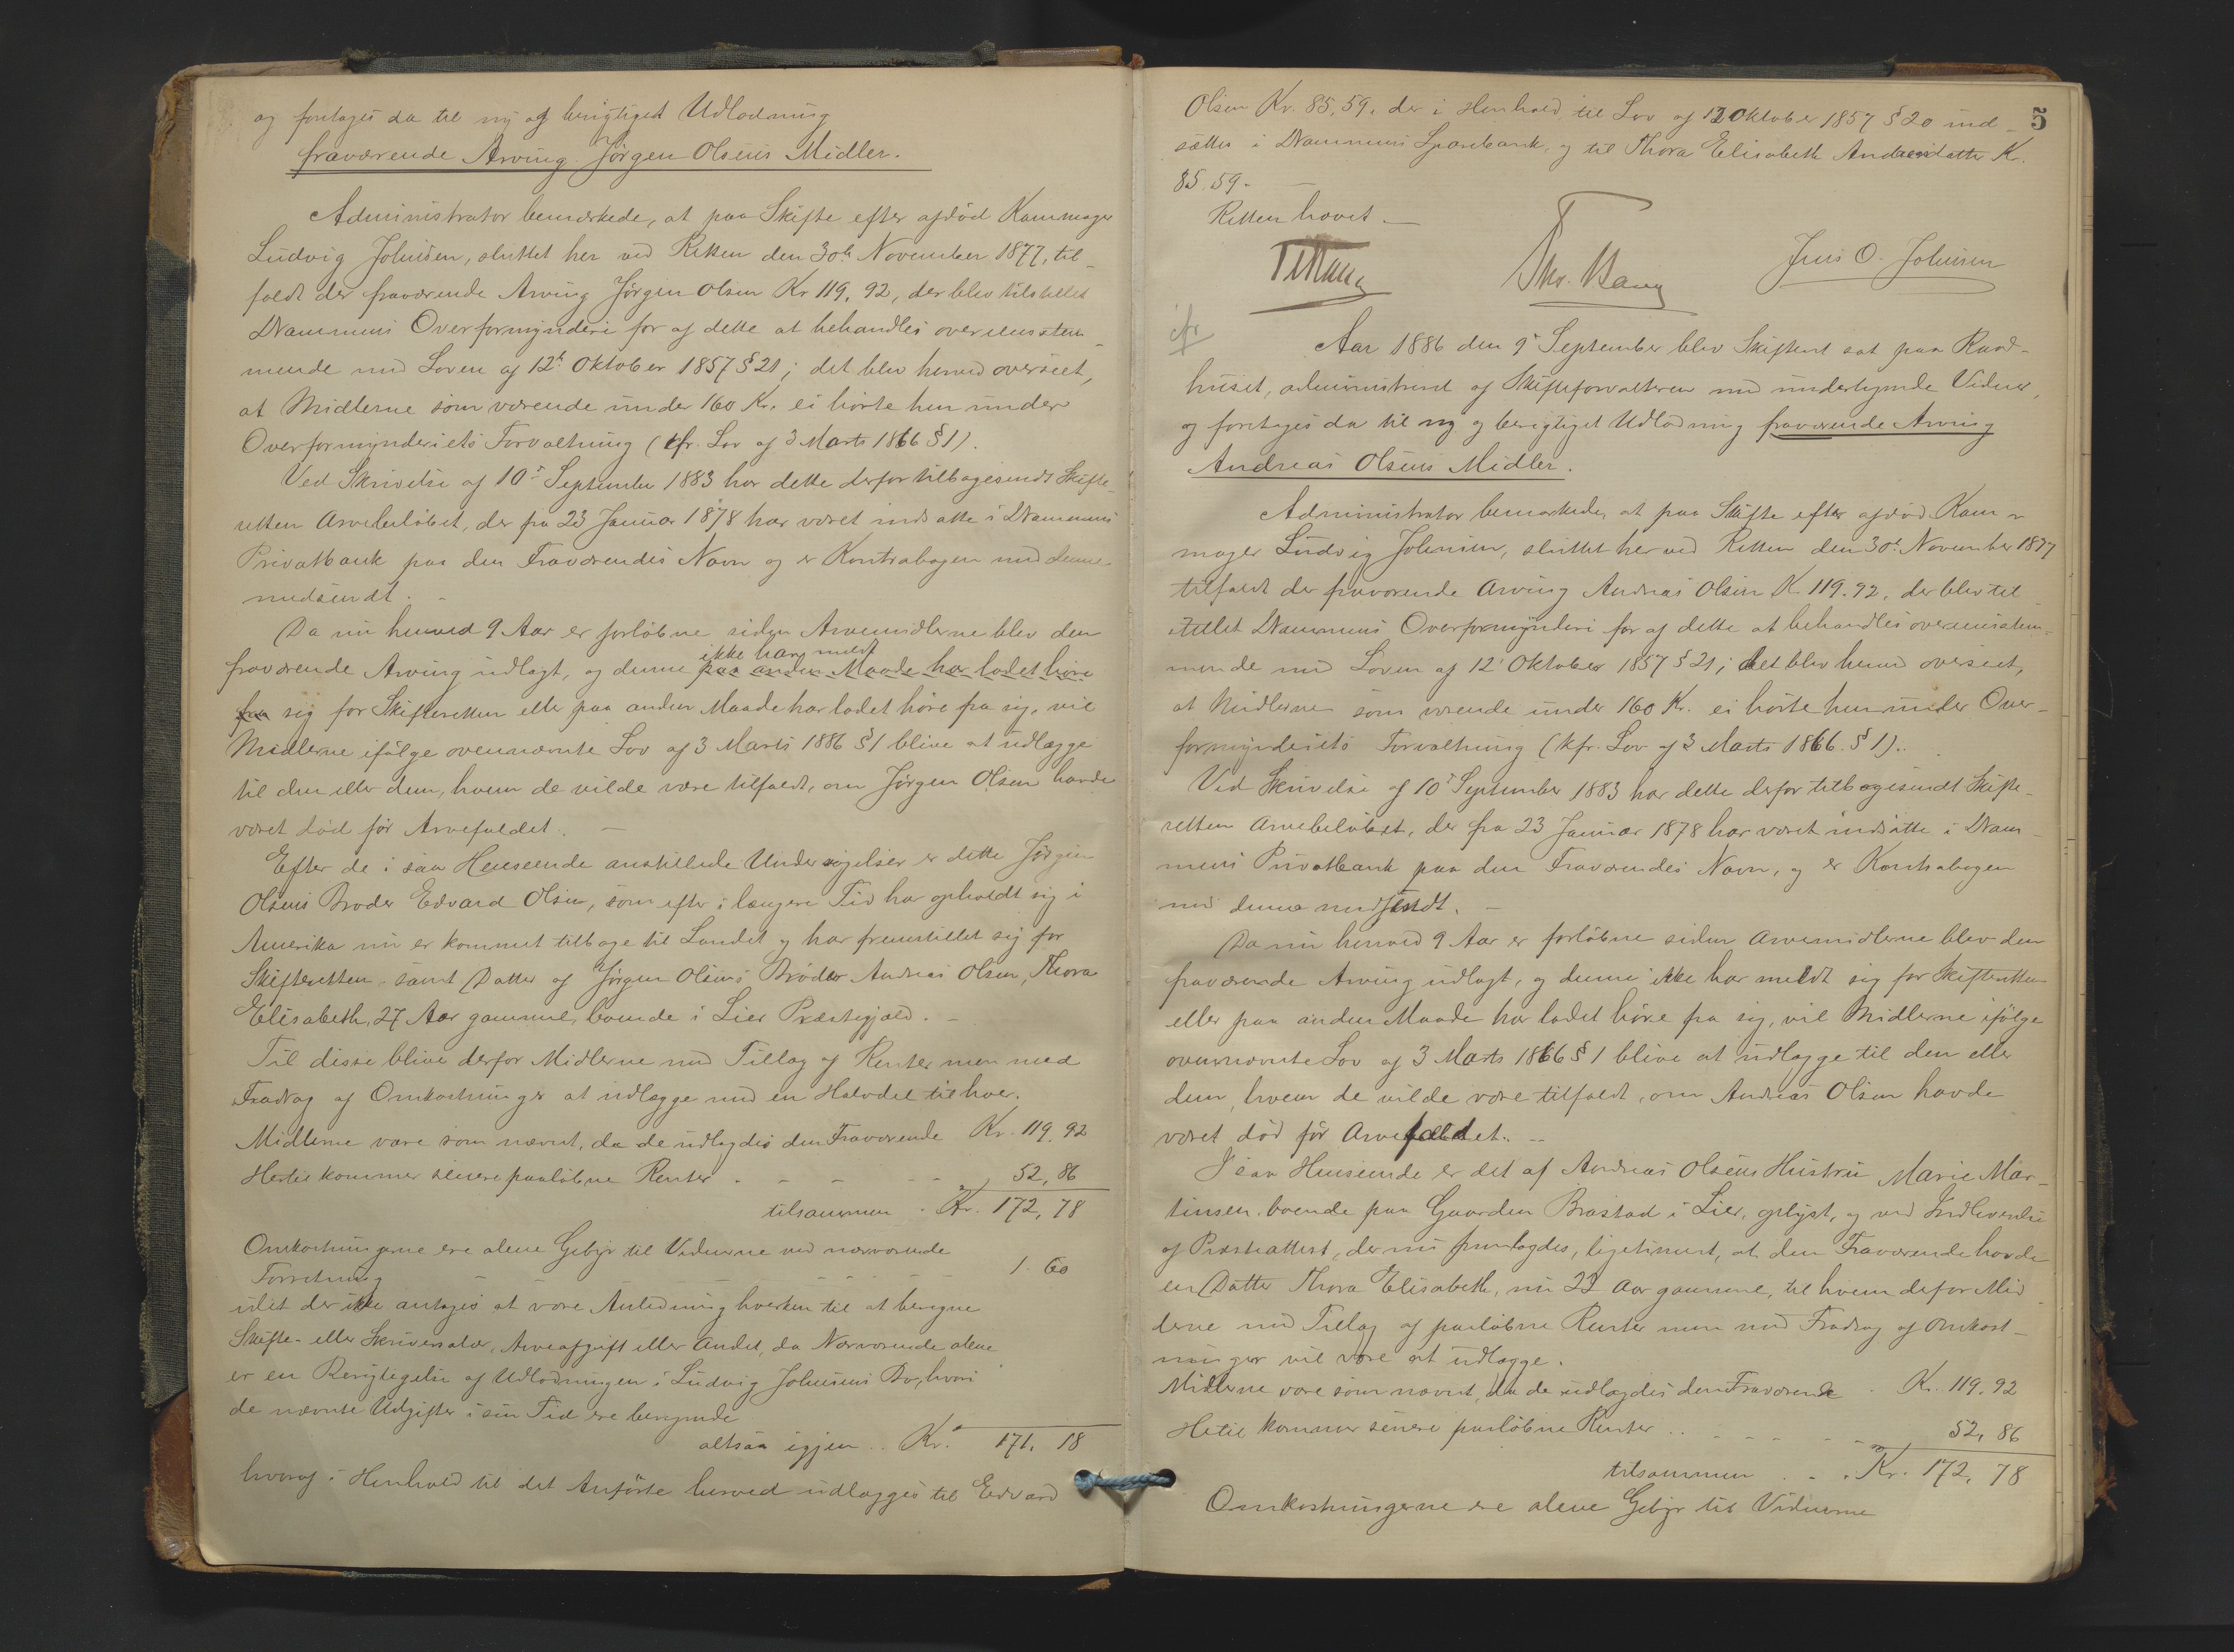 og foretages da til ny og berigtiget Udlodning
fraværende Arving Jørgen Olsens Midler.
Administrator bemærkede, at paa Skifte efter afdød Kammager
Ludvig Johnsen, sluttet her ved Retten den 30te November 1877, til-
faldt der fraværende Arving Jørgen Olsen Kr 119,92, der blev tilstillet
Drammens Overformynderi for af dette at behandles overensstem-
mende med Loven af 12t Oktober 1857 § 21; det blev herved overseet,
at Midlerne som værende under 160 Kr. ei hørte hen under
Overformynderiets Forvaltning (kfr. Lov af 3 Marts 1866 § 1).
Ved Skrivelse af 10de September 1883 har dette derfor tilbagesendt Skifte-
retten Arvebeløbet, der fra 23 Januar 1878 har været indsatte i Drammens
Privatbank paa den Fraværendes Navn og er Kontrabogen med denne
medsendt. -
Da nu henved 9 Aar er forløbne siden Arvemidlerne blev den
ikke har meldt
fraværende Arving udlagt, og denne paa anden Maade har ladet høre
fra sig for Skifteretten eller paa anden Maade har ladet høre fra sig, vil
Midlerne ifølge ovennævnte Lov af 3 Marts 1886 § 1 blive at udlægge
til den eller dem, hvem de vilde være tilfaldt, om Jørgen Olsen havde
været død før Arvefaldet. -
Efter de i saa Henseende anstillede Undersøgelser er dette Jørgen
Olsens Broder Edvard Olsen, som efter i længere Tid har opholdt sig i
Amerika nu er kommet tilbage til Landet og har fremstillet sig for
Skifteretten, samt Datter af Jørgen Olsens Broder Andreas Olsen, Thora
Elisabeth, 27 Aar gammel, boende i Lier Præstegjæld. -
Til disse blive derfor Midlerne med Tillæg af Renter men med
Fradrag af Omkostninger at udlægge med en Halvdel til hver.
Midlerne vare som nævnt, da de udlagdes den Fraværende Kr. 119,92
Hertil kommer senere paaløbne Renter - - - - - 52,86
tilsammen . Kr. 172,78
Omkostningerne ere alene Gebyr til Vidnerne ved nærværende
Forretning - - - - - - 1.60
idet der ikke antages at være Anledning hverken til at beregne
Skifte- eller Skriversalær, Arveafgift eller Andet, da Nærværende alene
er en Berigtigelse af Udlodningen i Ludvig Johnsens Bo, hvori
de nævnte Udgifter i sin Tid ere beregnede
altsaa igjen .. Kr. 171,18
hvoraf i Henhold til det Anførte herved udlægges til Edvard
5
Olsen Kr. 85,59, der i Henhold til Lov af 12 Oktober 1857 § 20 ind-
sættes i Drammens Sparebank, og til Thora Elisabeth Andreasdatter Kr.
85.59. -
Retten hævet. -
Tho. Bang Jens O. Johnsen
cfr
Aar 1886 den 9de September blev Skifteret sat paa Raad-
huset, administreret af Skifteforvalteren med undertegnede Vidner,
og foretages da til ny og berigtiget Udlodning fraværende Arving
Andreas Olsens Midler.
Administrator bemærkede, at paa Skifte efter afdød Kam-
mager Ludvig Johnsen, sluttet her ved Retten den 30te November 1877
tilfaldt der fraværende Arving Andreas Olsen K 119.92, der blev til-
stillet Drammens Overformynderi for af dette at behandles overensstem-
mende med Loven af 12t Oktober 1857 § 21; det blev herved overseet,
at Midlerne som værende under 160 Kr. ei hørte hen under Over-
formynderiets Forvaltning (kfr. Lov af 3 Marts 1866. § 1).
Ved Skrivelse af 10de September 1883 har dette derfor tilbagesendt Skifte-
retten Arvebeløbet, der fra 23 Januar 1878 har været indsatte i Dram-
mens Privatbank paa den Fraværendes Navn, og er Kontrabogen
med denne medsendt. -
Da nu henved 9 Aar er forløbne siden Arvemidlerne blev den
fraværende Arving udlagt, og denne ikke har meldt sig for Skifteretten
eller paa anden Maade har ladet høre fra sig, vil Midlerne ifølge
ovennævnte Lov af 3 Marts 1866 § 1 blive at udlægge til den eller
dem, hvem de vilde være tilfaldt, om Andreas Olsen havde
været død før Arvefaldet. --
I saa Henseende er det af Andreas Olsens Hustru Marie Mar-
tinsen, boende paa Gaarden Brastad i Lier, oplyst, og ved Indlevering
af Præsteattest, der nu fremlagdes, legitimeret, at den Fraværende havde
en Datter Thora Elisabeth, nu 27 Aar gammel, til hvem derfor Mid-
lerne med Tillæg af paaløbne Renter men med Fradrag af Omkost-
ninger vil være at udlægge.
Midlerne vare som nævnt, da de udlagdes den Fraværende . Kr. 119.92
Hertil kommer senere paaløbne Renter .. - - - - - 52,86
tilsammen . - . Kr. 172,78
Omkostningerne ere alene Gebyr til Vidnerne